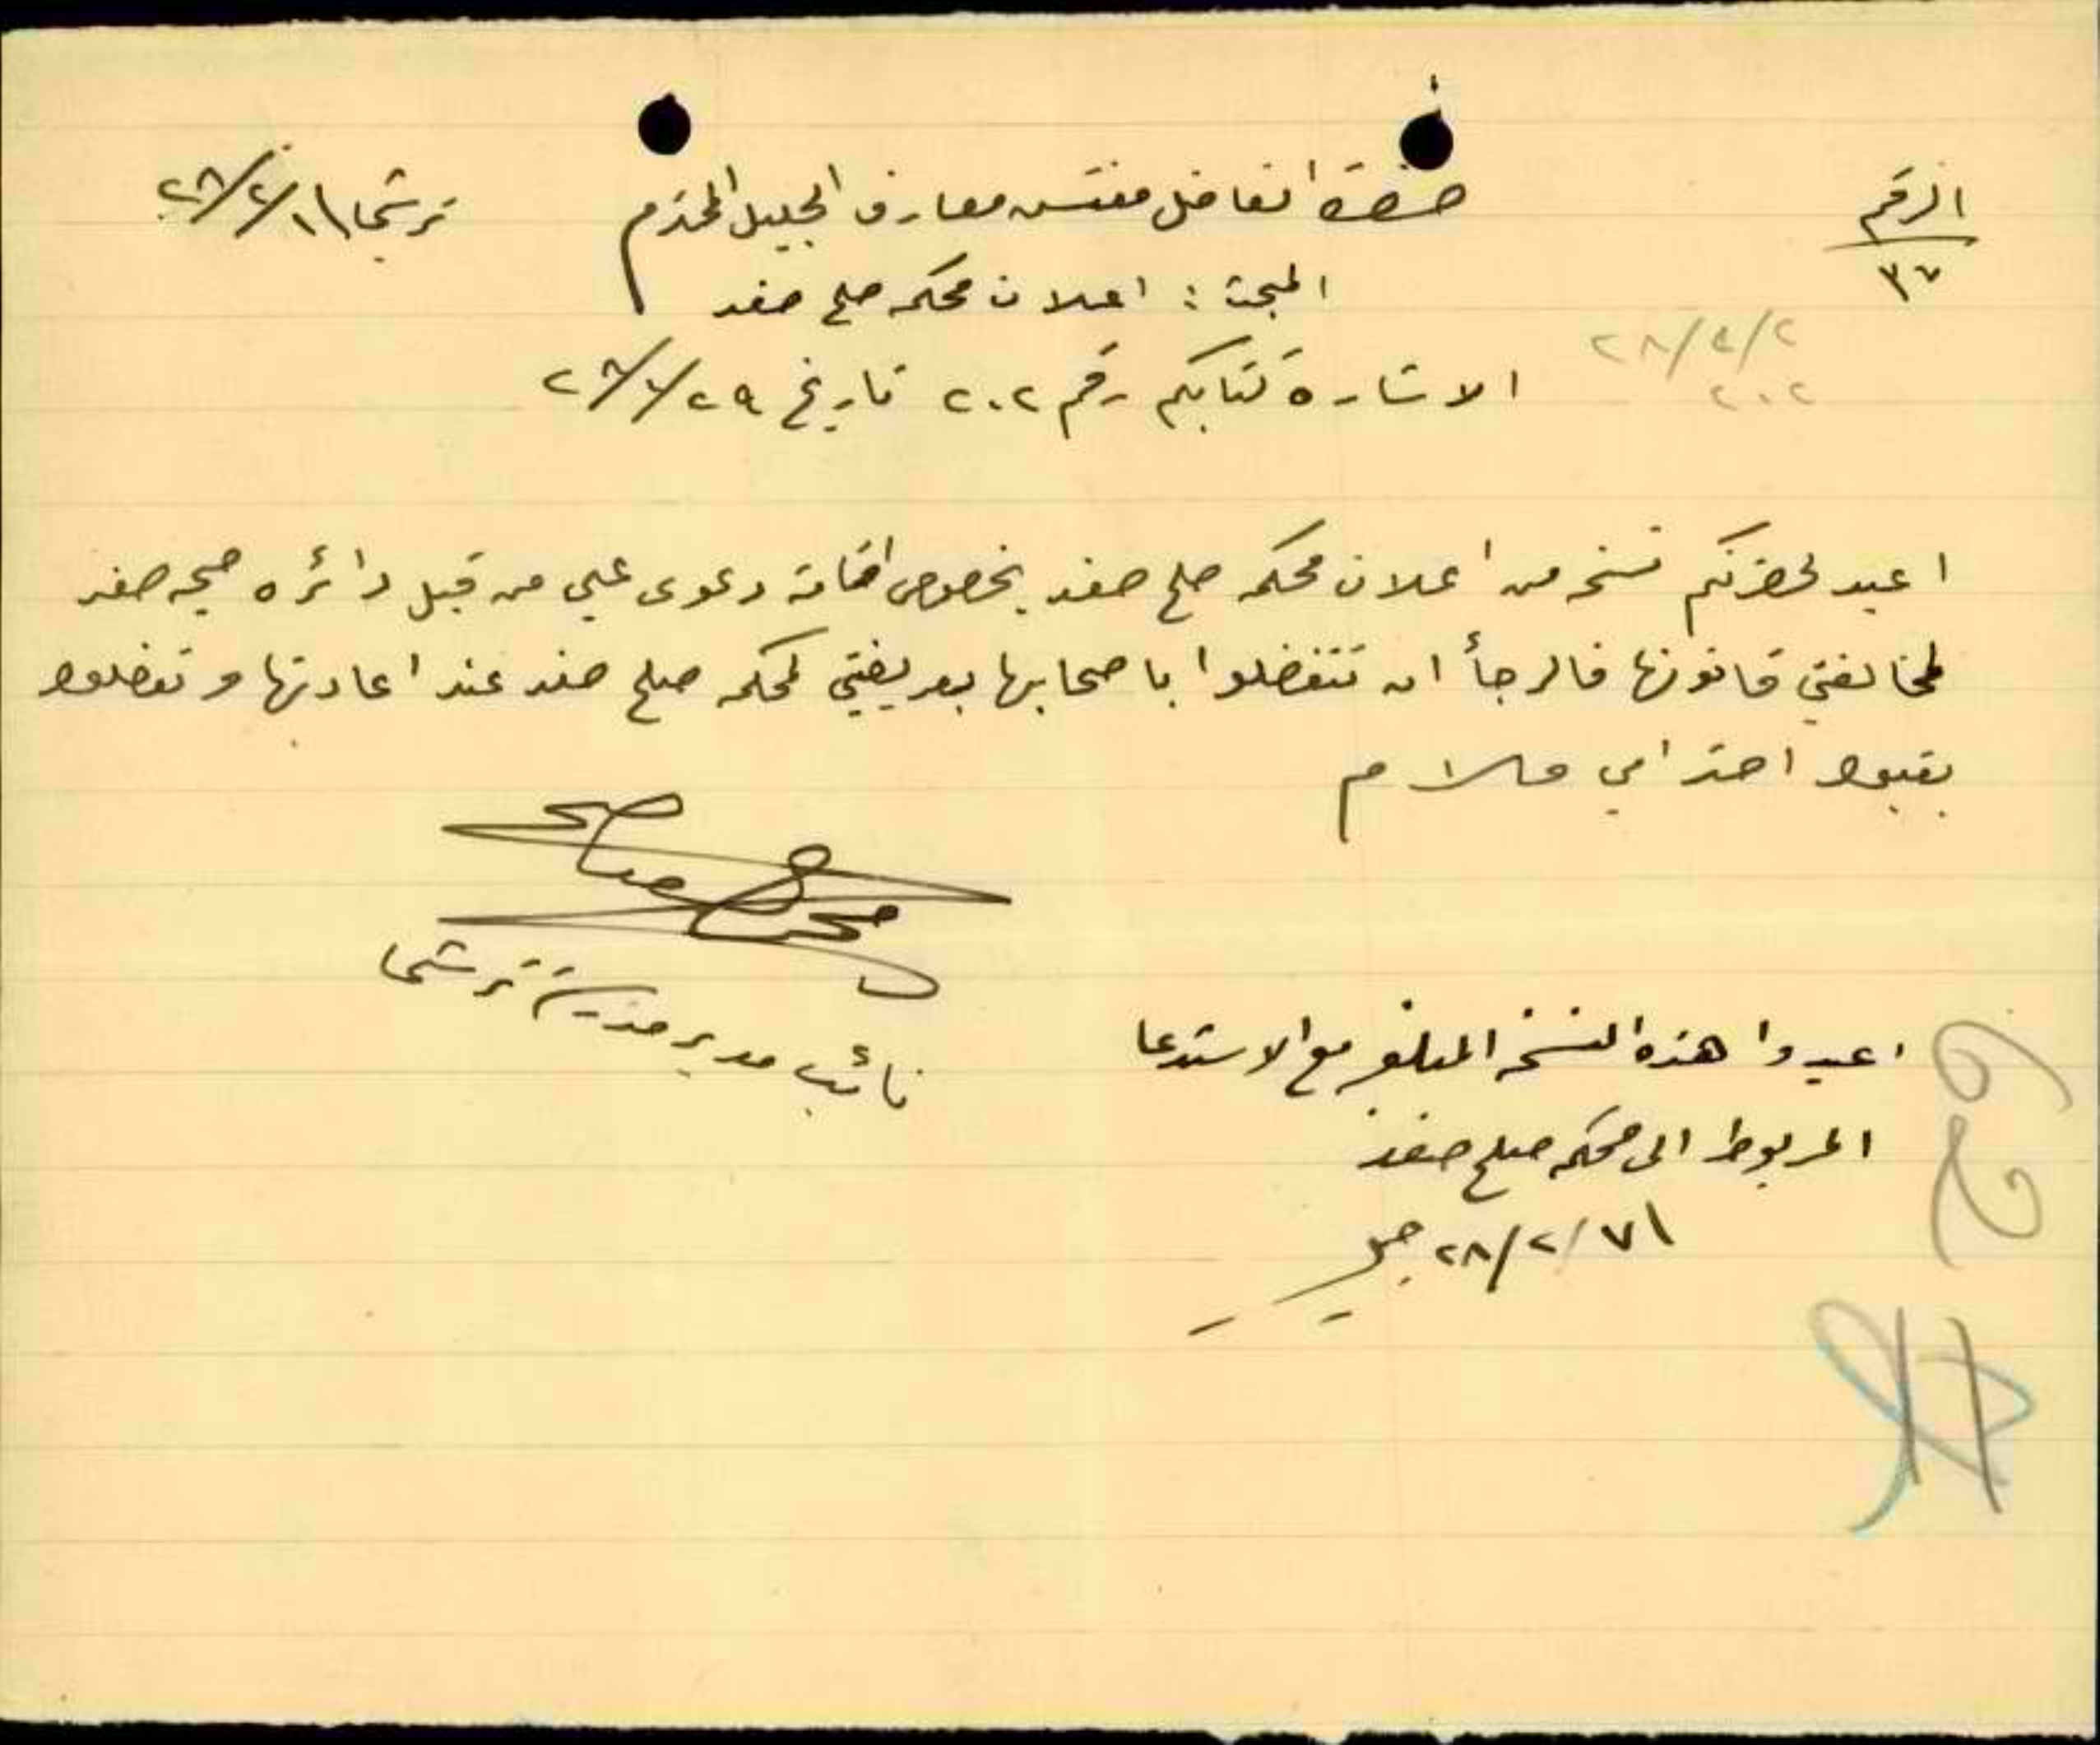 الرقم
٣٧
حضرة الفاضل مفتش معارف الجليل المحترم
ترشيحا ١/٢/٢٨
المبحث : اعلان محكمه صلح صفد
الاشارة كتابكم رقم ٢٠٢ تاريخ ٢٩/١/٢٨
٢٨/٤/٢
٢٠٢
اعيد لحضرتكم نسخه من اعلان محكمه صلح صفد بخصوص اقامة دعوى علي من قبل دائره صحيه صفد
لمخالفتي قانونها فالرجأ ان تتفضلوا باصحابها بعريضتي لمحكمه صلح صفد عند اعادتها وتفضلوا
بقبول احترامي وسلام
نائب مدير مدرسة ترشيحا
اعيدوا هذه النسخه المبلغه مع الاستدعا
المربوط الى محكمه صلح صفد
٢٨/٢/٧١